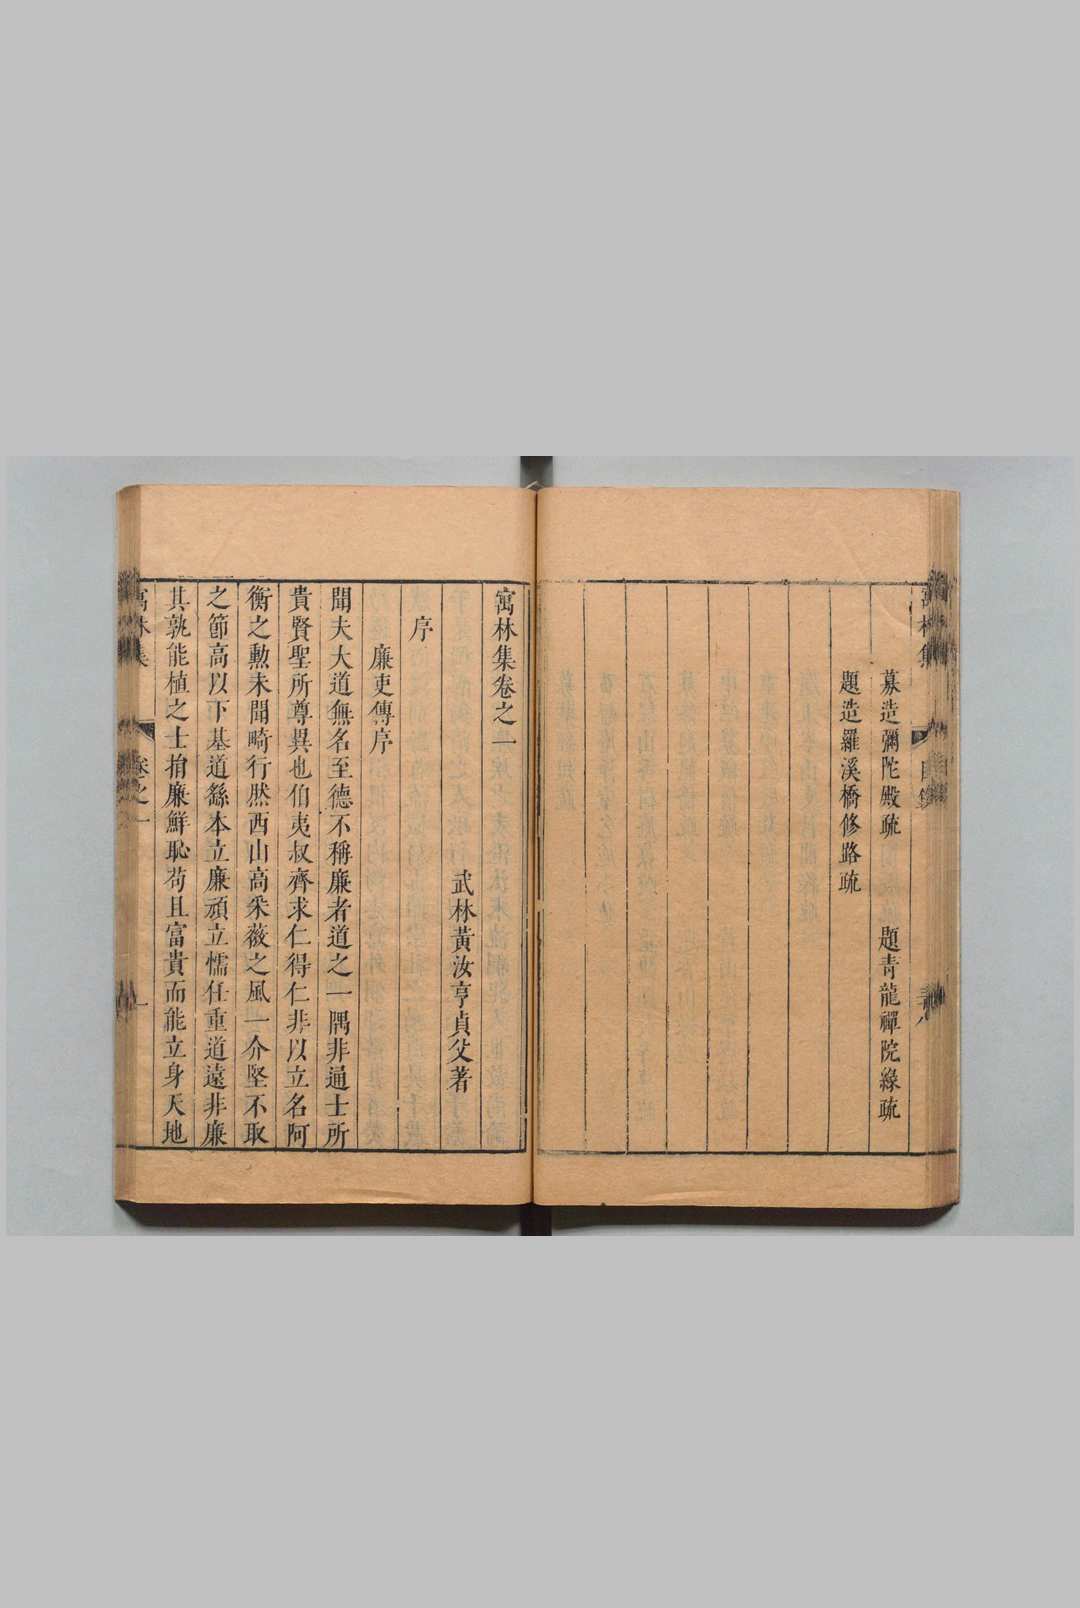 募造彌陀殿疏　題青龍禪院緣疏
題造羅溪橋修路疏
寓林集卷之一
武林黃汝亨貞父著
序
廉吏傳序
聞夫大道無名至德不稱廉者道之一隅非通士所
貴賢聖所尊異也伯夷叔齊求仁得仁非以立名阿
衡之勳未聞畸行然西山高采薇之風一介堅不取
之節高以下基道繇本立廉頑立懦任重道遠非廉
其孰能植之士捐廉鮮恥苟且富貴而能立身天地
寓林集
卷之一
一